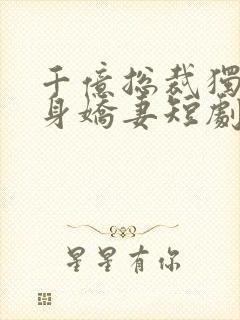 千億總裁獨
身嬌妻短劇
星星有你